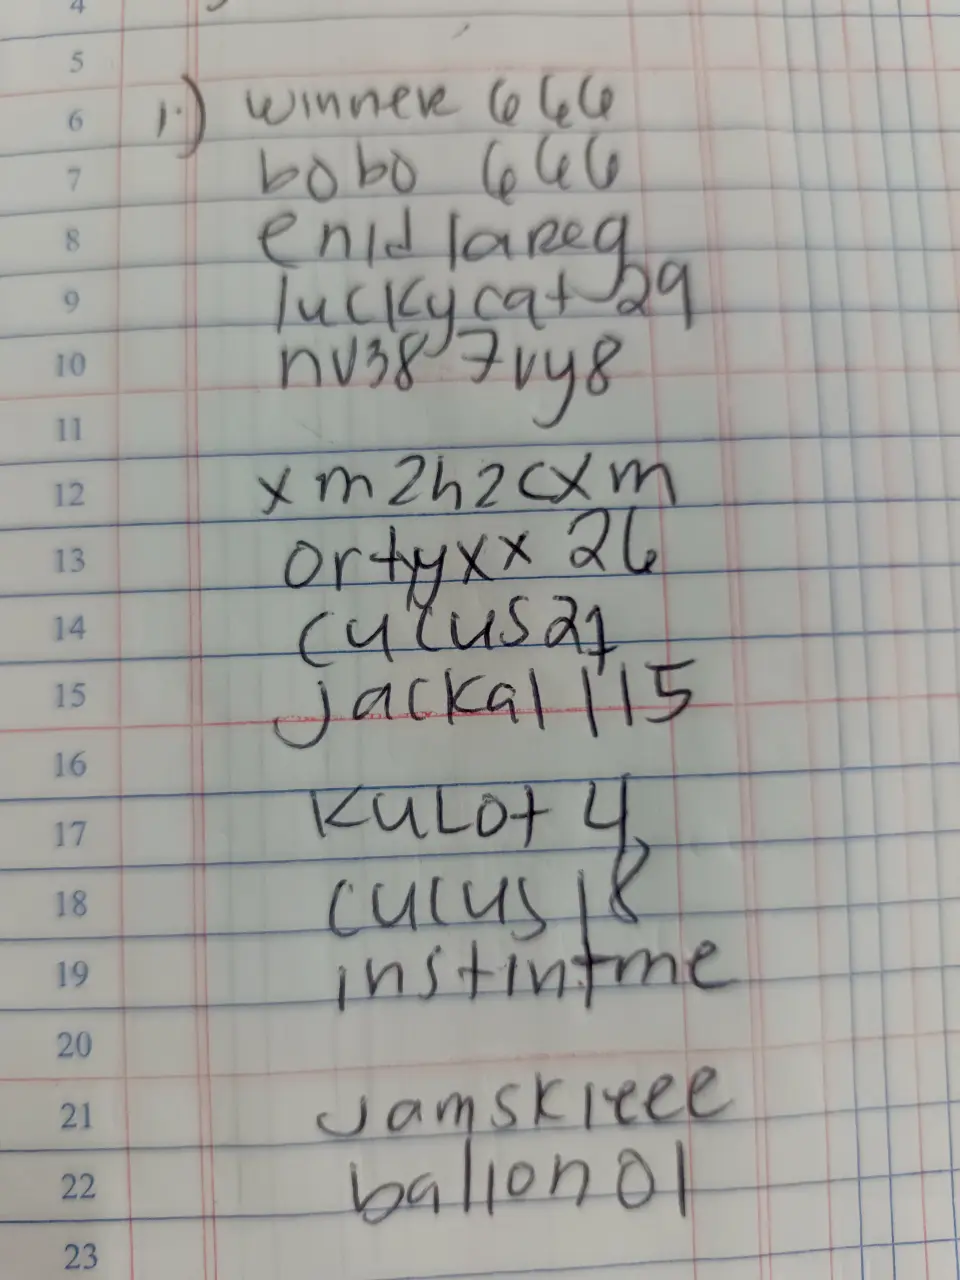 4
5
6 1.) winner 666
7 bobo 666
8 enid lareg
9 luckycat 29
10 nv38 7vy8
11
12 xm2h2cxm
13 ortyxx 26
14 cucus27
15 jackal 115
16
17 KuLot 4
18 cucus 18
19 instintme
20
21 jamskieee
22 balion01
23